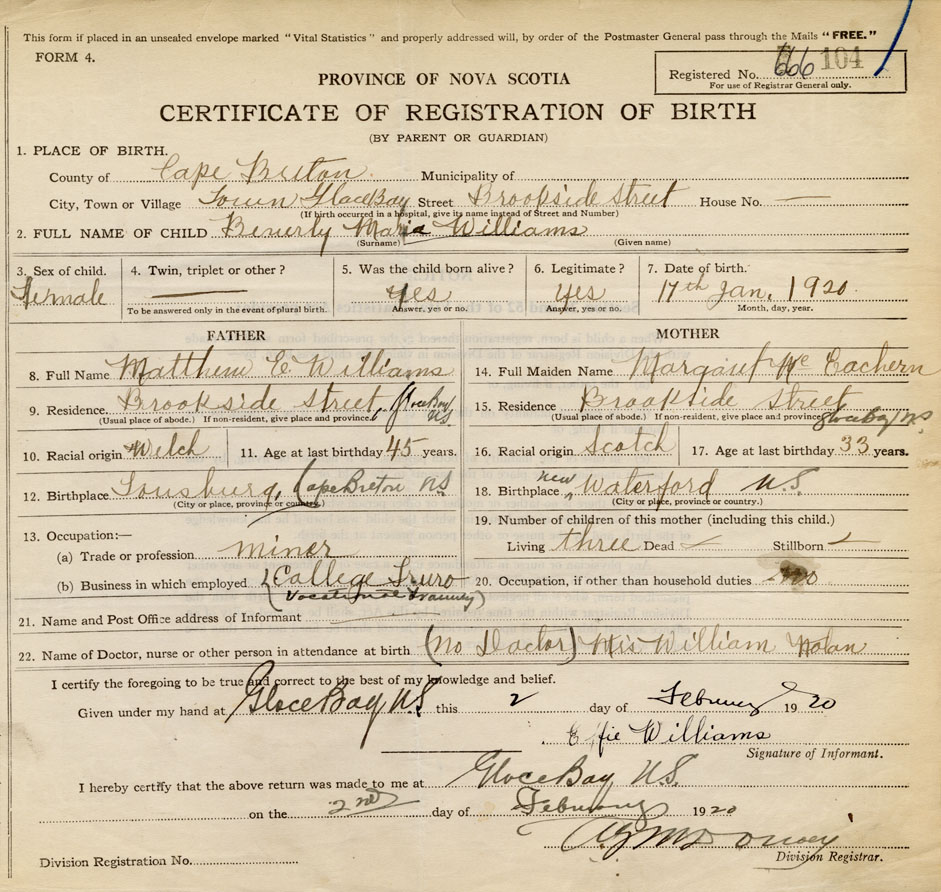 This form if placed in an unsealed envelope marked "Vital Statistics" and properly addressed will, by order of the Postmaster General pass through the Mails "FREE."
FORM 4.
PROVINCE OF NOVA SCOTIA
Registered No. 104
For use of Registrar General only.
CERTIFICATE OF REGISTRATION OF BIRTH
(BY PARENT OR GUARDIAN)
1. PLACE OF BIRTH.
County of Cape Breton Municipality of
City, Town or Village Town Glace Bay Street Brookside Street House No. —
(If birth occurred in a hospital, give its name instead of Street and Number)
2. FULL NAME OF CHILD Beverly Maria Williams
(Surname) (Given name)
3. Sex of child. 4. Twin, triplet or other? 5. Was the child born alive? 6. Legitimate? 7. Date of birth.
Female — Yes Yes 17th Jan. 1920
To be answered only in the event of plural birth. Answer, yes or no. Answer, yes or no. Month, day, year.
FATHER
8. Full Name Matthew E Williams
9. Residence. Brookside street Glace Bay N.S.
(Usual place of abode.) If non-resident, give place and province.
10. Racial origin Welch 11. Age at last birthday 45 years.
12. Birthplace Louisburg, Cape Breton N.S.
(City or place, province or country.)
13. Occupation:—
(a) Trade or profession miner
(b) Business in which employed (College Truro
Vocational Training)
MOTHER
14. Full Maiden Name Margaret Mc Eachern
15. Residence Brookside Street
(Usual place of abode.) If non-resident, give place and province Glace Bay N.S.
16. Racial origin Scotch 17. Age at last birthday 33 years.
18. Birthplace New Waterford N.S.
(City or place, province or country.)
19. Number of children of this mother (including this child.)
Living three Dead — Stillborn —
20. Occupation, if other than household duties no
21. Name and Post Office address of Informant
22. Name of Doctor, nurse or other person in attendance at birth (No Doctor) Mrs William Nolan
I certify the foregoing to be true and correct to the best of my knowledge and belief.
Given under my hand at Glace Bay N.S. this 2 day of February 1920
Effie Williams
Signature of Informant.
I hereby certify that the above return was made to me at Glace Bay N.S.
on the 2nd day of February 1920
Division Registration No. Division Registrar.